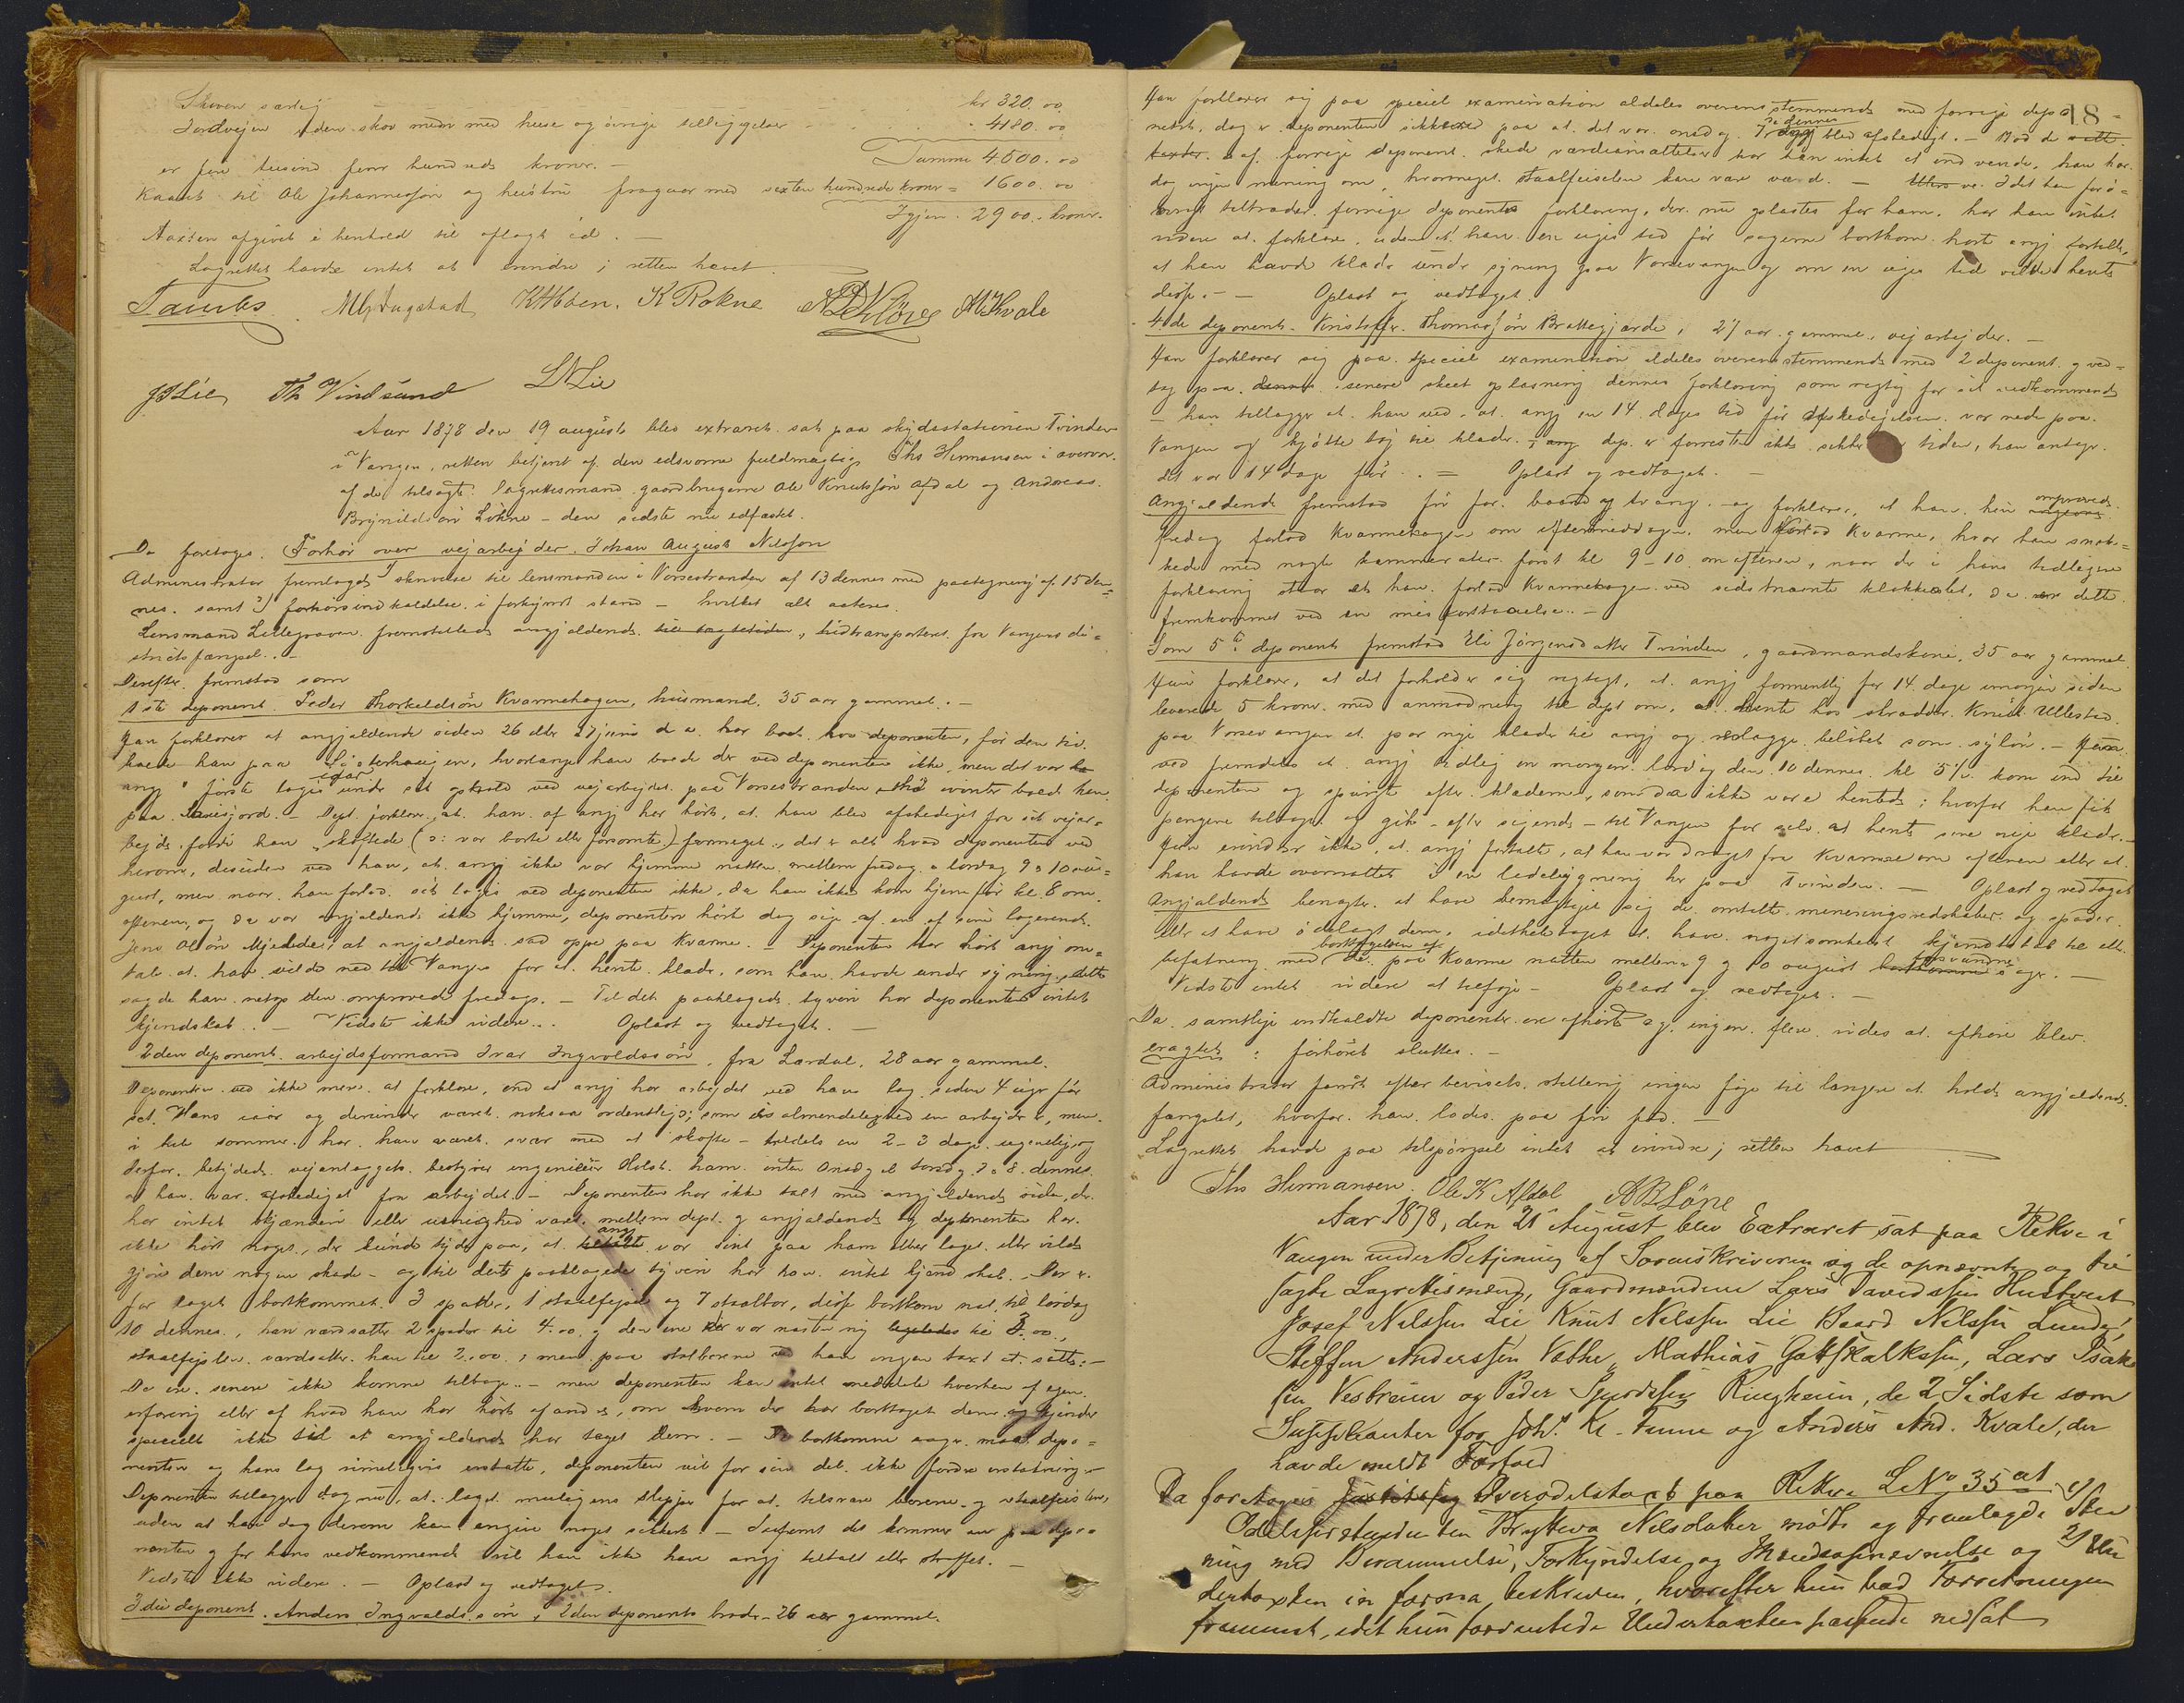 Skoven særlig kr 320.00
Jordvejen uden skov men med huse og øvrige tilliggelser 4180.00
Summa 4500.00
er fire tusind fem hundrede kroner. –
Kaaret til Ole Johannessøn og hustru fragaar med sexten hundrede kroner = 1600.00
Igjen 2900. kroner.
Taxten afgivet i henhold til aflagt ed. –
Lagrettet havde intet at erindre; retten hævet.
Tambs. K Rokne
JJLie Th Vindsand LNLie
Aar 1878 den 19 august blev extraret sat paa skydsstationen Tvinden
i Vangen, retten betjent af den edsvorne fuldmægtig Ths Hermansen i overvær
af de tilsagte lagrettesmænd gaardbrugerne Ole Knutssøn Afdal og Andreas
Brynildsøn Løkne – den sidste nu edfæstet.
Da foretoges. Forhør over vejarbejder Johan August Nilsson
Administrator fremlagde 1) skrivelse til lensmanden i Vossestranden af 13 dennes med paategning af 15 den=
nes. samt 2) forhørsindkaldelse i forkyndt stand – hvilket alt acteres.
Lensmand Lillegraven fremstillede angjældende, hidtransporteret fra Vangens di=
striktsfængsel. –
Derefter fremstod som
1ste deponent Peder Thorkeldsøn Kvarmehagen, husmand, 35 aar gammel. –
Han forklarer at angjældende siden 26 eller 27 juni d. a. har boet hos deponenten, før den tid
boede han paa, hvorlænge han boede der ved deponenten ikke, men det var
angj første logis iaar under sit ophold ved vejarbejdet paa Vossestranden, vinter boede han
paa. – Dept. forklarer, at han af angj har hørt, at han blev afskediget fra sit vejar=
bejde fordi han "skoftede (ɔ: var borte eller forsømte) formeget., det er alt hvad deponenten ved
herom, desuden ved han, at angj ikke var hjemme natten mellem fredag og lørdag 9 & 10 au=
gust, men naar han forlod sit logis ved deponenten ikke, da han ikke kom hjem før kl. 8 om
aftenen, og da var angjældende ikke hjemme, deponenten hørte dog sige af en af sine logerende
Jens Olsøn, at angjældende sad oppe paa Kvarme. – Deponenten har hørt angj om=
tale at han vilde ned til Vangen for at hente klæder, som han havde under syning, dette
sagde han netop den omprovede fredag. – Til det paaklagede tyveri har deponenten intet
kjendskab. – Vidste ikke videre. Oplæst og vedtaget. –
2den deponent arbejdsformand Ivar Ingvoldssøn, fra Lærdal, 28 aar gammel.
Deponenten ved ikke mere at forklare, end at angj har arbejdet ved hans lag siden 4 uger før
sct. Hans iaar og derunder været noksaa ordentlig, som almindelighed en arbejder er, men
i hele sommer har han været svær med at skofte – tildels en 2–3 dage ugentlig og
derfor betydede vejanlæggets bestyrer ingeniør Holst ham enten onsdag el torsdag 7 & 8 dennes
at han var afskediget fra arbejdet. – Deponenten har ikke talt med angjældende siden, der
har intet skjænderi eller uenighed været mellem dept. og angjældende og deponenten har
ikke hørt noget, der kunde tyde paa, at angj var sint paa ham eller laget eller vilde
gjøre dem nogen skade – og til dette paaklagede tyveri har han intet kjendskab. – Der er
for laget bortkommet 3 spader, 1 staalfejsel og 7 staalbor, disse bortkom nat til lørdag
10 dennes, han værdsatte 2 spader til 4.00, og den ene der var næsten ny til
staalfejslen værdsætter han til 2.00, men paa stalborene ved han ingen taxt at sætte. –
De ere senere ikke komne tilbage. – men deponenten kan intet meddele hverken af egen
erfaring eller af hvad han har hørt af andre, om hvem der har borttaget dem og kjender
specielt ikke til at angjældende har taget dem. – De bortkomne sager maa depo=
nenten og hans lag rimeligvis erstatte, deponenten vil for sin del ikke fordre erstatning –
Deponenten tillægger dog nu, at laget muligens slipper for at tilsvare borene og staalfeislen,
uden at han dog derom kan angive noget sikkert. – Saafremt det kommer an paa depo=
nenten og for hans vedkommende vil han ikke have angj tiltalt eller straffet. –
Vidste ikke videre. – Oplæst og vedtaget.
3die deponent. Anders Ingvaldssøn, 2den deponents broder – 26 aar gammel.
18
Han forklarer sig paa speciel examination aldeles overensstemmende med forrige depo=
nent, dog er deponenten sikker paa at det var onsdag 7de dennes angj blev afskediget. – Mod de
af forrige deponent skede værdiansættelser har han intet at indvende, han har
dog ingen mening om, hvormeget staalfeiselen kan være værd. – Idet han forø=
vrigt tiltræder forrige deponents forklaring, der nu oplæstes for ham, har han intet
videre at forklare, uden at han en uges tid før sagerne bortkom hørte angj fortælle,
at han havde klæder under syning paa Vossevangen og om en uges tid vilde hente
disse. – – Oplæst og vedtaget.
4de deponent. Kristoffer Thomassøn Brattegjærde, 27 aar gammel, vejarbejder. –
Han forklarer sig paa speciel examination aldeles overensstemmende med 2 deponent, og ved=
tog paa senere skeet oplæsning dennes forklaring som rigtig for sit vedkommende
– han tillægger at han ved at angj en 14 dages tid før afskedigelsen var nede paa
Vangen og kjøbte tøj til klæder. dep. er forresten ikke sikker tiden, han antager
det var 14 dage før. = Oplæst og vedtaget. –
Angjældende fremstod fri for baand og tvang og forklarer, at han hin omprovede
fredag forlod Kvarmehagen om eftermiddagen, men forlod Kvarme, hvor han snak=
kede med nogle kammerater først kl 9–10 om aftenen, naar der i hans tidligere
forklaring staar at han forlod Kvarmehagen ved sidstnævnte klokkeslet, da er dette
fremkommet ved en misforstaaelse. –
Som 5te deponent fremstod Eli Jørgensdatter Tvinden, gaardmandskone, 35 aar gammel.
Hun forklarer, at det forholder sig rigtigt, at angj formentlig for 14 dage imorgen siden
leverede 5 kroner med anmodning til dept om, at hente hos skrædder Knut Ullestad
paa Vossevangen et par nye klæder til angj og udlægge beløbet som syløn. – Hun
ved fremdeles at angj tidlig en morgen lørdag den 10 dennes kl 5½ kom ind til
deponenten og spurgte efter klæderne, som da ikke vare hentede; hvorfor han fik
pengene tilbage og gik – efter sigende – til Vangen for selv at hente sine nye klæder. –
Hun erindrer ikke, at angj fortalte, at han var draget fra Kvarme om aftenen eller at
han havde overnattet i en ledebygning her paa Tvinden. – Oplæst og vedtaget
Angjældende benægter at have bemægtiget sig de omtalte mineringsredskaber og spader
eller at have ødelagt dem, idethele taget at have noget somhelst kjendskab til eller
befatning med borttagelsen af de paa Kvarme natten mellem 9 og 10 august forsvundne sager. –
Vidste intet videre at tilføje – Oplæst og vedtaget. –
Da samtlige indkaldte deponenter ere afhørte og ingen flere vides at afhøre blev
eragtet: forhøret sluttes. –
Administrator fandt efter bevisets stilling ingen føje til længere at holde angjældende
fængslet, hvorfor han lodes paa fri fod. –
Lagrettet havde paa tilspørgsel intet at erindre; retten hævet
Ths Hermansen. Ole K Afdal ABLöne
Aar 1878, den 21 August blev Extraret sat paa Rekve i
Vangen under Betjening af Sorenskriveren og de opnævnte og til
sagte Lagrettesmænd, Gaardmændene Lars Davidssen Hustveit
Josef Nilssen Lie Knut Nilssen Lie Baard Nilssen Lunde,
Steffen Anderssen Vethe, Mathias Gotskalkssen, Lars Isak
sen Vestreim og Peder Sjurdssen Ringheim, de 2 Sidste som
Suppleanter for Joh.s K. Tunne og Anders And. Kvale, der
havde meldt Forfald
Da foretoges Overodelstaxt paa Rekve LNo 35 a1.
Odelsfordringshaversken Brytteva Nilsdatter mødte og fremlagde 1) Stev
ning med Berammelse, Forkyndelse og Mændsopnævnelse og 2) Un
dertaxten in forma beskreven, hvorefter hun bad Forretningen
fremmet, idet hun forventede Undertaxten passende nedsat